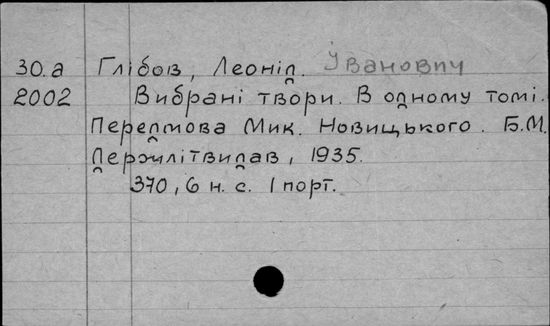 30.а Глібов, Леонід. Іванович
2002 Вибрані твори. В одному томі.
Передмова Мик. Новицького. Б.М.
Держлітвидав, 1935.
370, 6 н. с. 1 порт.